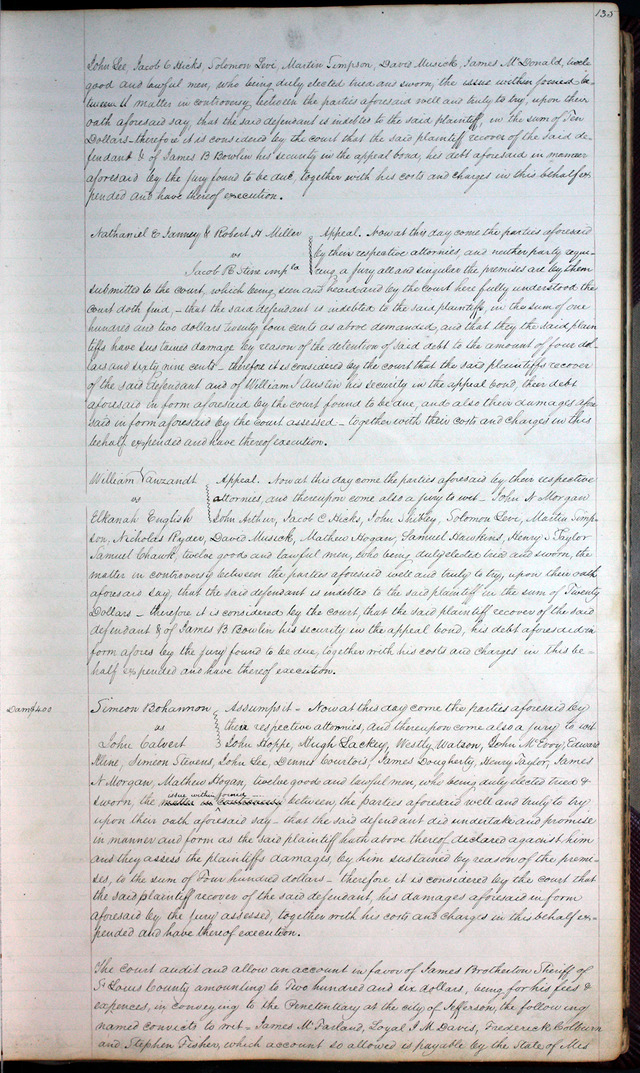 135
John Lee, Jacob C Hicks, Solomon Levi, Martin Simpson, David Musick, James McDonald, twelve
good and lawful men, who being duly elected tried and sworn, the issue within joined be-
tween matter in controversy between the parties aforesaid well and truly to try, upon their
oath aforesaid say, that the said defendant is indebted to the said plaintiff, in the sum of Ten
Dollars – therefore it is considered by the court that the said plaintiff recover of the said de-
fendant & of James B Bowlin his security in the appeal bond, his debt aforesaid in manner
aforesaid by the jury found to be due, together with his costs and charges in this behalf ex-
pended and have thereof execution.
Nathaniel E Janney & Robert H Miller
vs
Jacob R Stine impld
Appeal. Now at this day come the parties aforesaid
by their respective attornies, and neither party requi-
ring a jury all and singular the premises are by them
submitted to the court, which being seen and heard and by the court here fully understood the
court doth find, – that the said defendant is indebted to the said plaintiffs, in the sum of one
hundred and two dollars twenty four cents as above demanded, and that they the said plain
tiffs have sustained damage by reason of the detention of said debt to the amount of four dol-
lars and sixty nine cents – therefore it is considered by the court that the said plaintiffs recover
of the said defendant and of William Austin his security in the appeal bond, their debt
aforesaid in form aforesaid by the court found to be due, and also their damages afore
said in form aforesaid by the court assessed – together with their costs and charges in this
behalf expended and have thereof execution.
William Vanzandt
vs
Elkanah English
Appeal. Now at this day come the parties aforesaid by their respective
attornies, and thereupon come also a jury to wit – John N Morgan
John Arthur, Jacob C Hicks, John Shibley, Solomon Levi, Martin Simp-
son, Nicholas Ryder, David Mussick, Mathew Hogan, Samuel Hawkins, Henry S Taylor
Samuel Chawk, twelve good and lawful men, who being duly elected tried and sworn, the
matter in controversy between the parties aforesaid well and truly to try, upon their oath
aforesaid say, that the said defendant is indebted to the said plaintiff in the sum of Twenty
Dollars – therefore it is considered by the court, that the said plaintiff recover of the said
defendant & of James B Bowlin his security in the appeal bond, his debt aforesaid in
form afores by the jury found to be due, together with his costs and charges in this be-
half expended and have thereof execution.
Dam$400
Simeon Bohannon
vs
John Calvert
Assumpsit – Now at this day come the parties aforesaid by
their respective attornies, and thereupon come also a jury to wit
John Hoppe, Hugh Lackey, Westly Watson, John McEvoy, Edward
Kline, Simeon Stevens, John Lee, Dennis Courtois, James Dougherty, Henry Taylor, James
N Morgan, Mathew Hogan, twelve good and lawful men, who being duly elected tried &
issue within joined
sworn, the matter in controversy between, the parties aforesaid well and truly to try
upon their oath aforesaid say – that the said defendant did undertake and promise
in manner and form as the said plaintiff hath above thereof declared against him
and they assess the plaintiffs damages, by him sustained by reason of the premi-
ses, to the sum of Four hundred dollars – therefore it is considered by the court that
the said plaintiff recover of the said defendant, his damages aforesaid in form
aforesaid by the jury assessed, together with his costs and charges in this behalf ex-
pended and have thereof execution.
The court audit and allow an account in favor of James Brotherton Sheriff of
St Louis County amounting to Two hundred and six dollars, being for his fees &
expences, in conveying to the Penetentiary at the city of Jefferson, the following
named convicts to wit – James McFarland, Loyal J M Davis, Frederick Colburn
and Stephen Fisher, which account so allowed is payable by the State of Mis